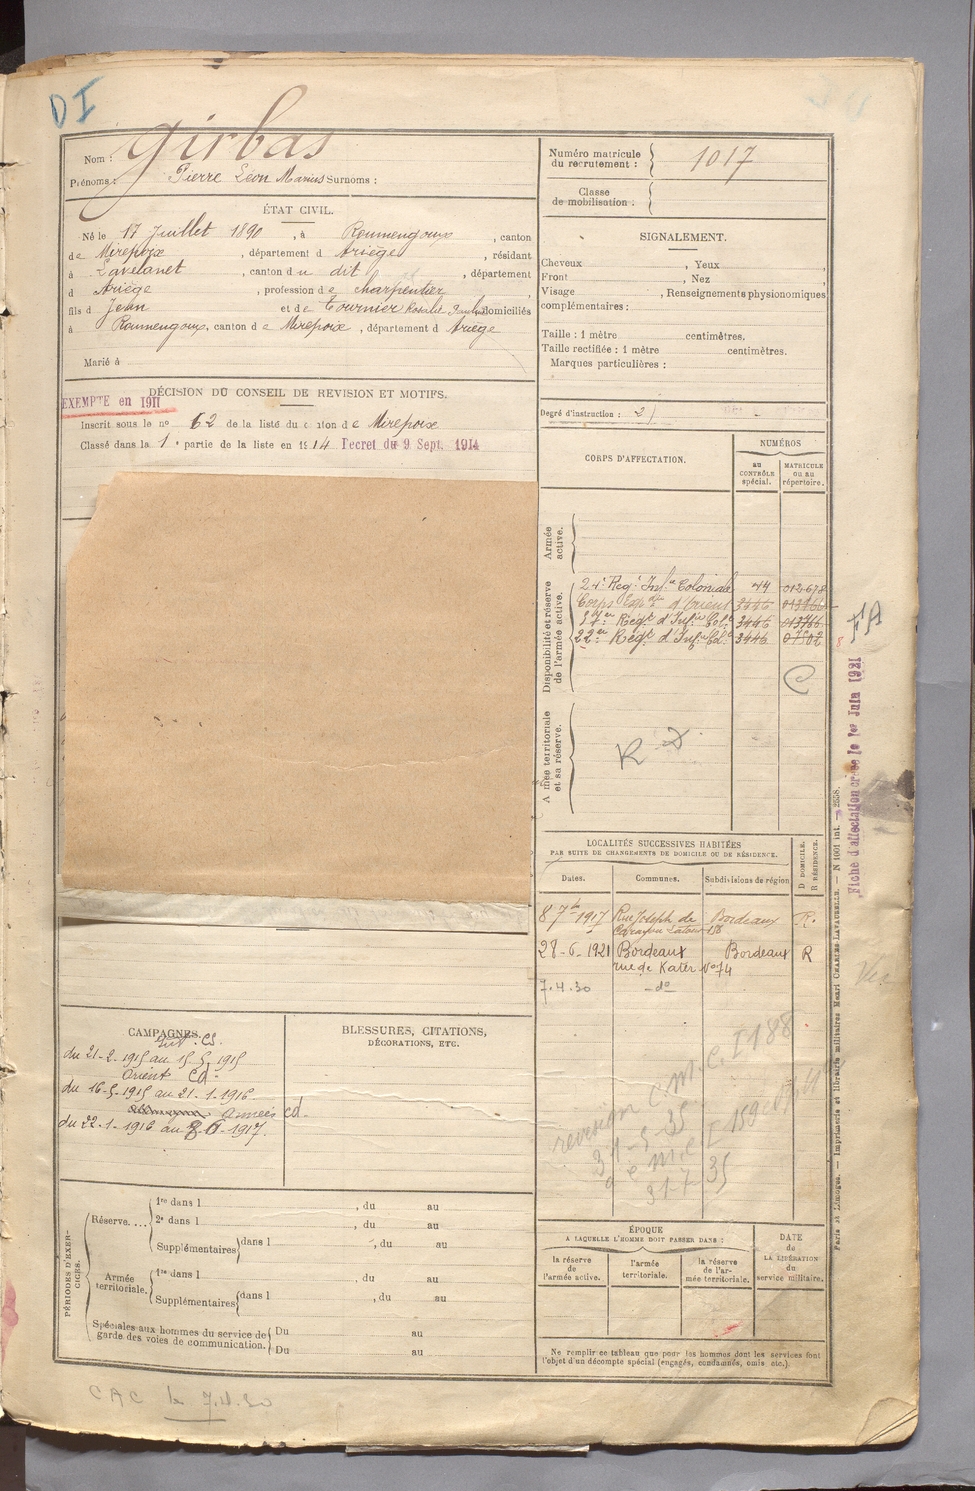 DI
Nom : Girbas
Prénoms : Pierre Léon Marius Surnoms :
Numéro matricule du recrutement : 1017
Classe de mobilisation :
ÉTAT CIVIL.
Né le 17 Juillet 1890, à Roumengoux, canton
de Mirepoix, département d Ariège, résidant
à Lavelanet, canton du dit, département
d Ariège, profession de charpentier
fils d Jean et de Tournier Rosalie domiciliés
à Roumengoux, canton de Mirepoix, département d Ariège
Marié à
SIGNALEMENT.
Cheveux , Yeux ,
Front , Nez ,
Visage , Renseignements physionomiques
complémentaires :
Taille : 1 mètre centimètres.
Taille rectifiée : 1 mètre centimètres.
Marques particulières :
Degré d'instruction : 2
DÉCISION DU CONSEIL DE REVISION ET MOTIFS.
EXEMPTÉ en 1911
Inscrit sous le no 62 de la liste du canton de Mirepoix
Classé dans la 1e partie de la liste en 1914 Décret du 9 Sept. 1914
CORPS D'AFFECTATION.
NUMÉROS
au CONTRÔLE spécial.
MATRICULE OU AU répertoire.
Armée active.
Disponibilité et réserve de l'armée active.
24e Régt Infie Coloniale 44 012678
Corps Expre d'Orient 3446 013766
37e Régt d'Infie Cole 3446 013766
22e Régt d'Infie Cole 3446 07502
C
FA
Fiche d'affectation créée le 1er Juin 1921
Armée territoriale et sa réserve.
LOCALITÉS SUCCESSIVES HABITÉES
PAR SUITE DE CHANGEMENTS DE DOMICILE OU DE RÉSIDENCE.
Dates.
Communes.
Subdivisions de région
D DOMICILE.
R RÉSIDENCE.
8 7b 1917 Rue Joseph de Carayon Latour 156 Bordeaux R.
28-6-1921 Bordeaux Bordeaux R
rue de Kater No 74
7.4.30 -do-
CAMPAGNES.
Int. CS.
du 21-2-1915 au 15-5-1915
Orient Cd.
du 16-5-1915 au 21-1-1916.
Armées cd.
du 22-1-1916 au 8-6-1917.
BLESSURES, CITATIONS,
DÉCORATIONS, ETC.
revision C.M.C. I 188
31-7-35
PÉRIODES D'EXERCICES.
Réserve....
1re dans l , du au
2e dans l , du au
Supplémentaires dans l , du au
Armée territoriale.
1re dans l , du au
Supplémentaires dans l , du au
Spéciales aux hommes du service de garde des voies de communication.
Du au
Du au
ÉPOQUE
A LAQUELLE L'HOMME DOIT PASSER DANS :
la réserve de l'armée active.
l'armée territoriale.
la réserve de l'armée territoriale.
DATE de LA LIBÉRATION du service militaire.
Ne remplir ce tableau que pour les hommes dont les services font
l'objet d'un décompte spécial (engagés, condamnés, omis etc.).
Paris et Limoges. — Imprimerie et librairie militaires Henri CHARLES-LAVAUZELLE. — N 1001 int. — 2558.
CAC le 7.4.30